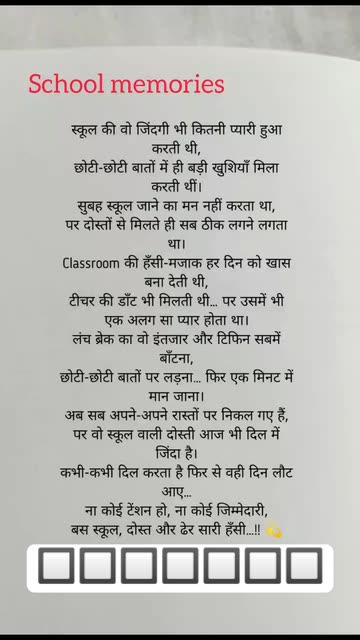 School memories
स्कूल की वो जिंदगी भी कितनी प्यारी हुआ
करती थी,
छोटी-छोटी बातों में ही बड़ी खुशियाँ मिला
करती थीं।
सुबह स्कूल जाने का मन नहीं करता था,
पर दोस्तों से मिलते ही सब ठीक लगने लगता
था।
Classroom की हँसी-मजाक हर दिन को खास
बना देती थी,
टीचर की डाँट भी मिलती थी… पर उसमें भी
एक अलग सा प्यार होता था।
लंच ब्रेक का वो इंतजार और टिफिन सबमें
बाँटना,
छोटी-छोटी बातों पर लड़ना… फिर एक मिनट में
मान जाना।
अब सब अपने-अपने रास्तों पर निकल गए हैं,
पर वो स्कूल वाली दोस्ती आज भी दिल में
जिंदा है।
कभी-कभी दिल करता है फिर से वही दिन लौट
आए…
ना कोई टेंशन हो, ना कोई जिम्मेदारी,
बस स्कूल, दोस्त और ढेर सारी हँसी…!! 💫